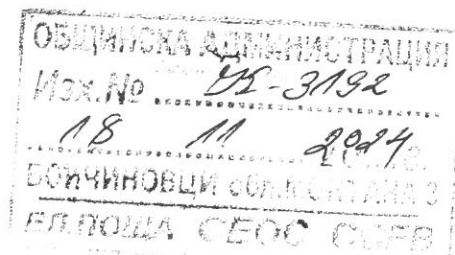 ОБЩИНСКА АДМИНИСТРАЦИЯ
Изх.№ УК-3192
18 11 2024
БОЙЧИНОВЦИ обл.МОНТАНА 3
ЕЛ.ПОЩА СЕОС